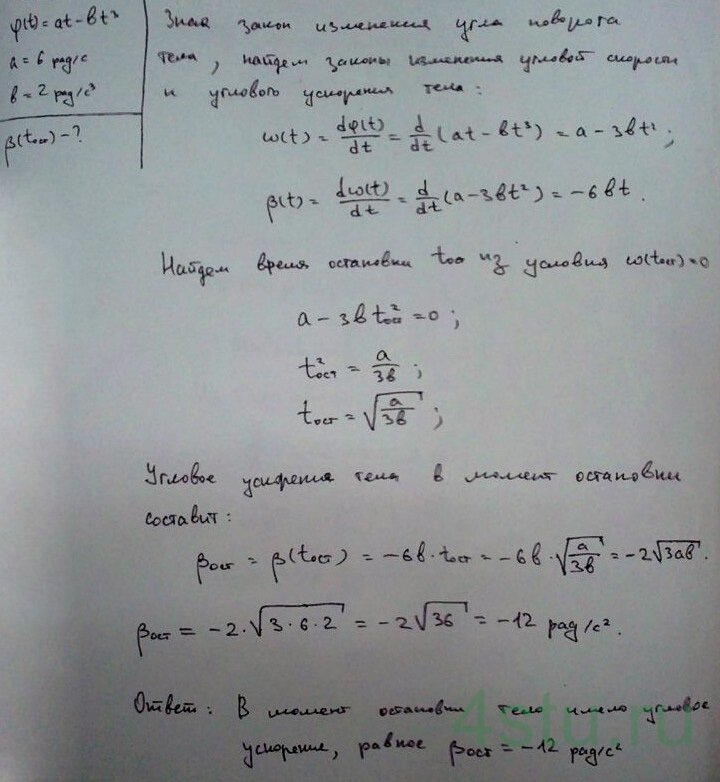 φ(t)=at-bt³
a = 6 рад/с
b = 2 рад/с³
β(tост) - ?
Зная закон изменения угла поворота
тела, найдем законы изменения угловой скорости
и углового ускорения тела:
ω(t) = dφ(t)/dt = d/dt (at - bt³) = a - 3bt²;
β(t) = dω(t)/dt = d/dt (a - 3bt²) = -6bt.
Найдем время остановки tост из условия ω(tост)=0
a - 3b t²ост = 0;
t²ост = a/3b;
tост = √(a/3b);
Угловое ускорения тела в момент остановки
составит:
βост = β(tост) = -6b·tост = -6b·√(a/3b) = -2√3ab.
βост = -2·√3·6·2 = -2√36 = -12 рад/с².
Ответ: В момент остановки тело имело угловое
ускорение, равное βост = -12 рад/с²
4stu.ru